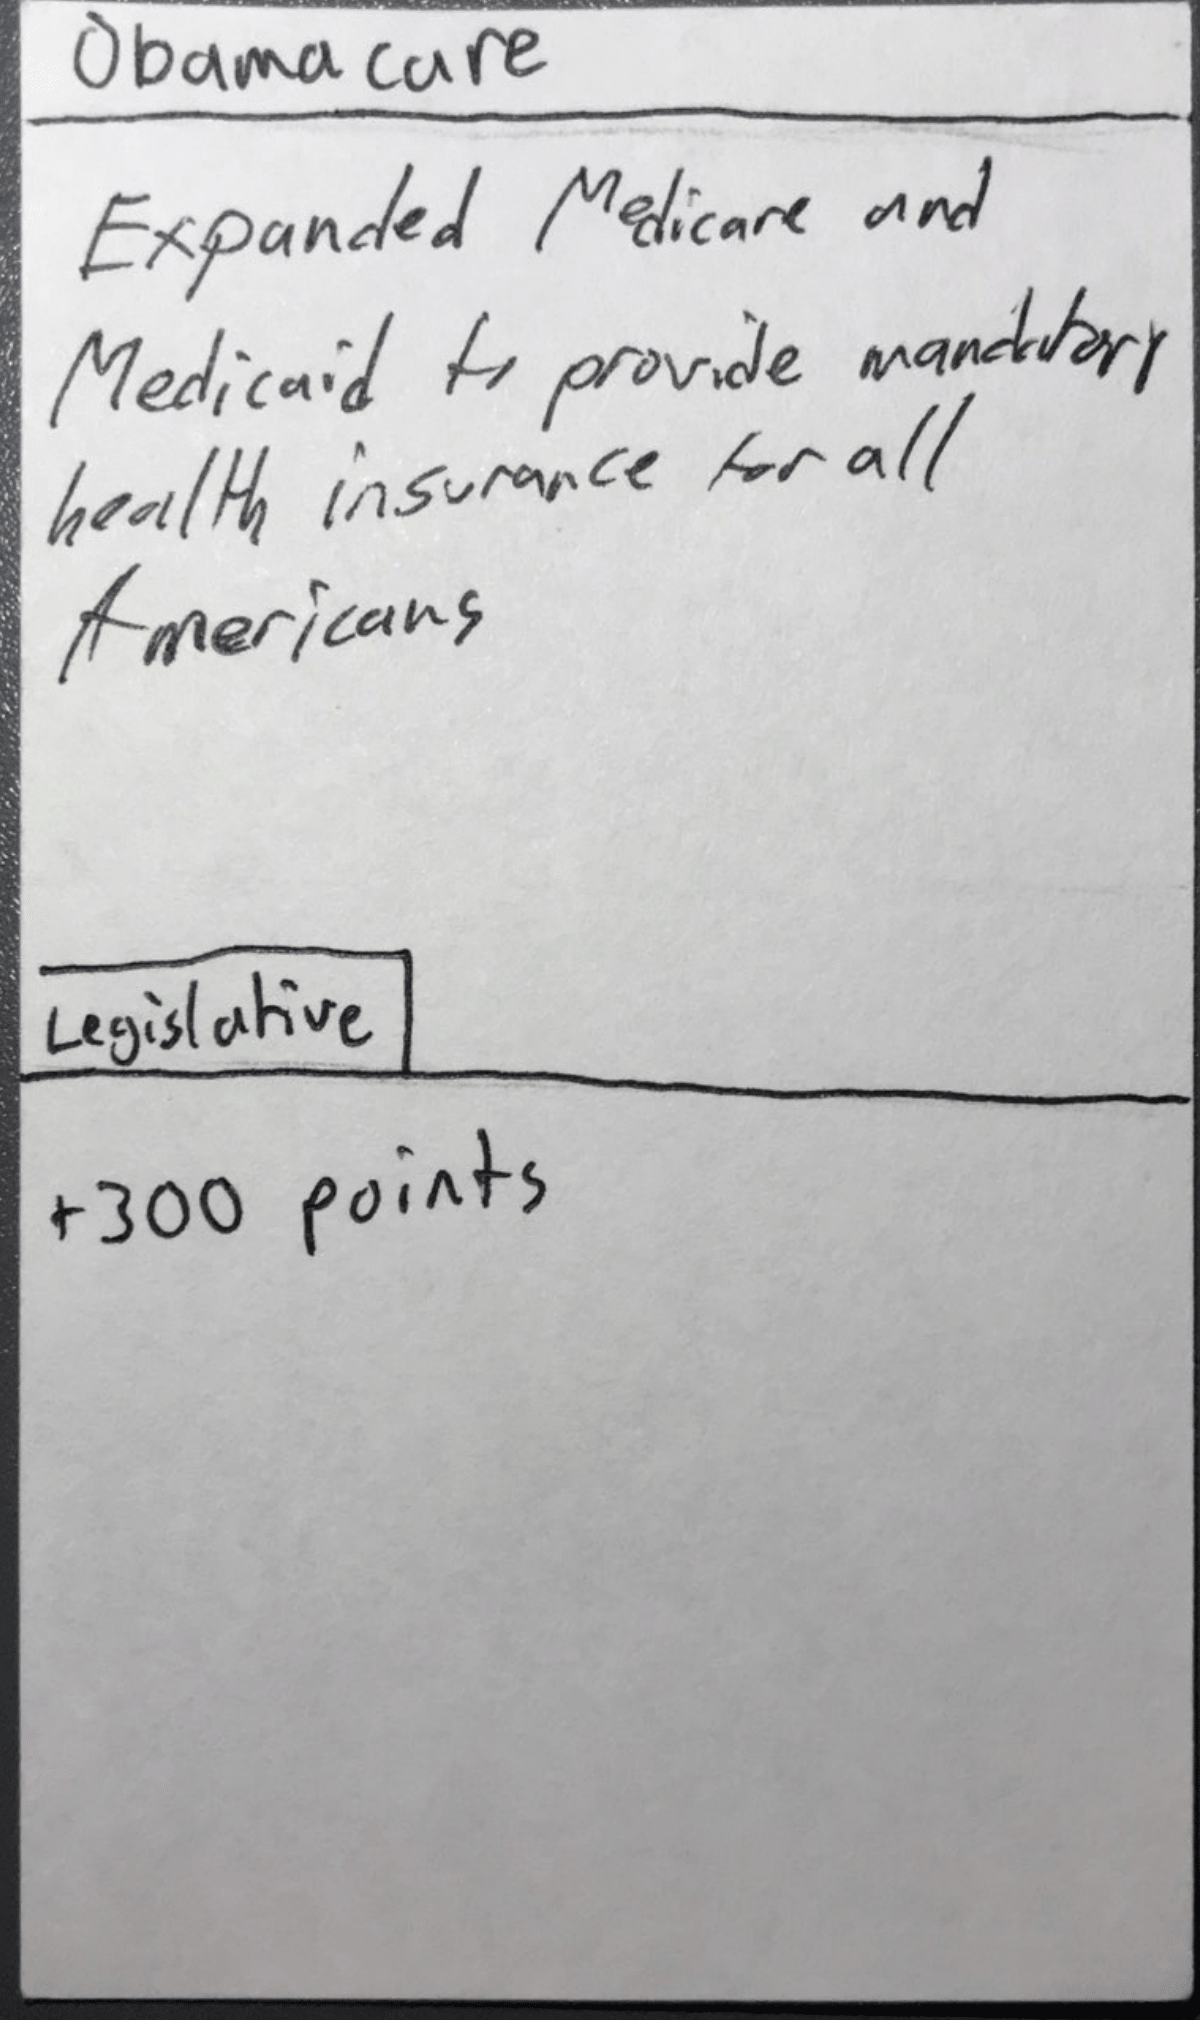 Obamacare
Expanded Medicare and
Medicaid to provide mandatory
health insurance for all
Americans
Legislative
+300 points